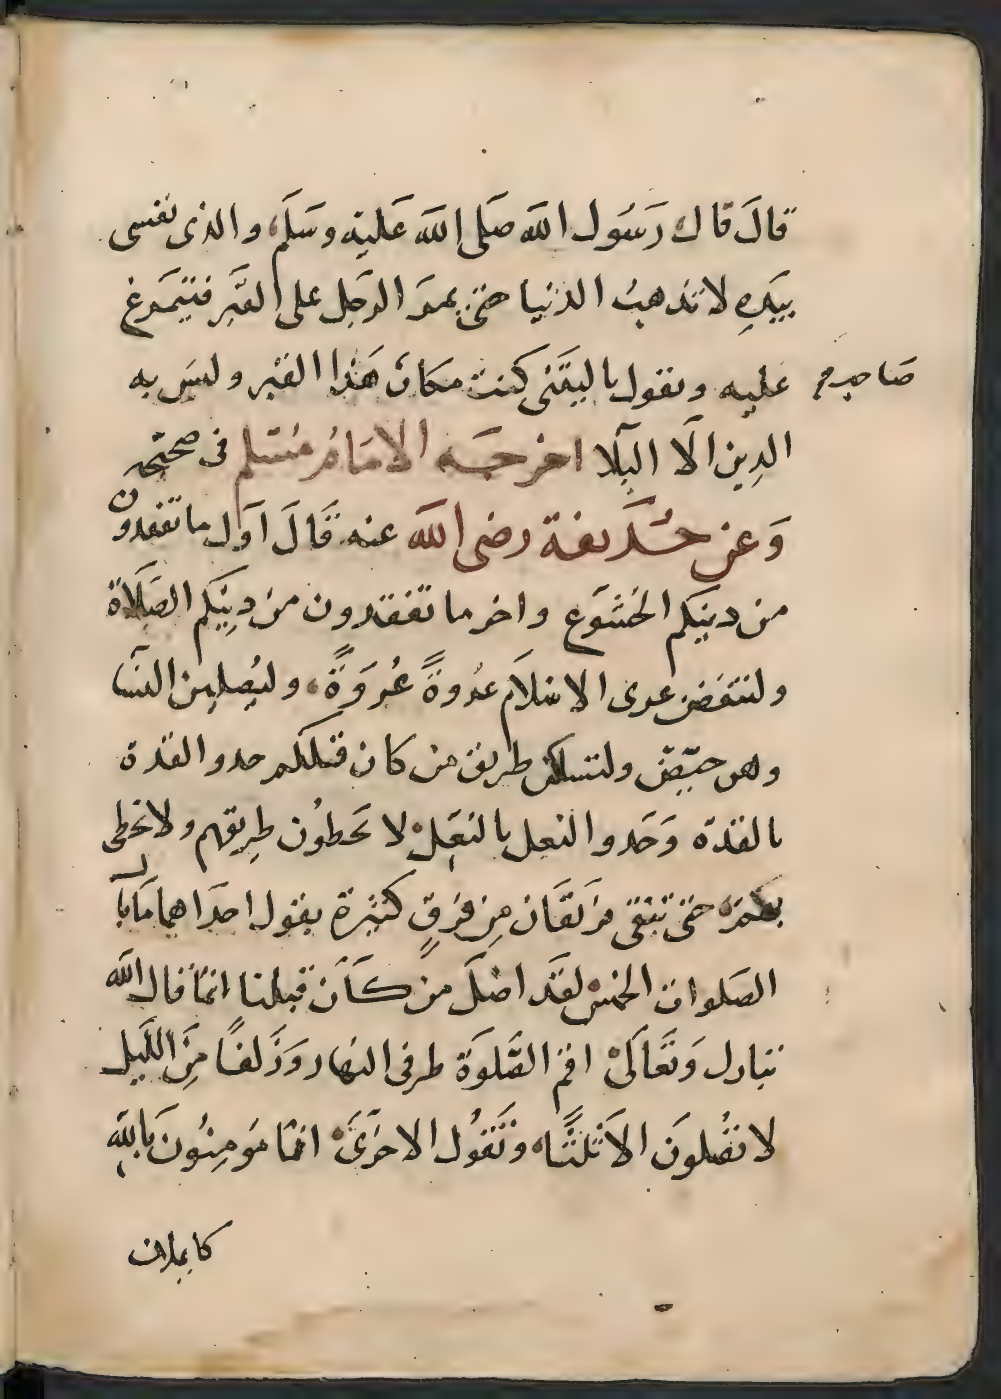 قالَ قال رَسُول الله صَلى الله عَليْه وسَلم والذى نفسى
بيَدِهِ لا تذهبُ الدنيا حتى يمرَ الرجل على القبَرِ فيتمَرغ
عليه ويقول ياليتنى كنت مكان هَذا القبْر وليسَ به
صَاحبه
الدِين الَّا البَلا اخرجَه الامَامُ مُسْلم فى صحيحه
وَعن حُذَيفة رضى الله عنه قَالَ اَول ما تفقدون
من دينكم الخشوَع واخر ما تفقدون من دينِكم الصَلَاة
ولتنقضن عرى الاسْلاَم عروةً عُروَةً وليُصلين النسَا
وهن حيّض ولتسلكن طريق من كان قبلكم حدو القدة
بالقدّة وَحَدو النعل بالنعَل لا تخَطوُن طِريقهم ولا تخطى
بكم حتى تبقى فرَقتَان مِن فرَقٍ كثيرة يقول احدَاهما مَا بال
الصَلوات الخمسْ لقَد اضلَ من كَاَن قبلنا انما قال الله
تبارك وَتَعاَلىْ اقم الصَّلوَة طرفى النهار وَزَلفًا مِّنَ اللَّيل
لا تصُلونَ الاَ ثلثًا وتَقوُل الاخرَىَ انما مَومِنُون بَاللّه
كايمان